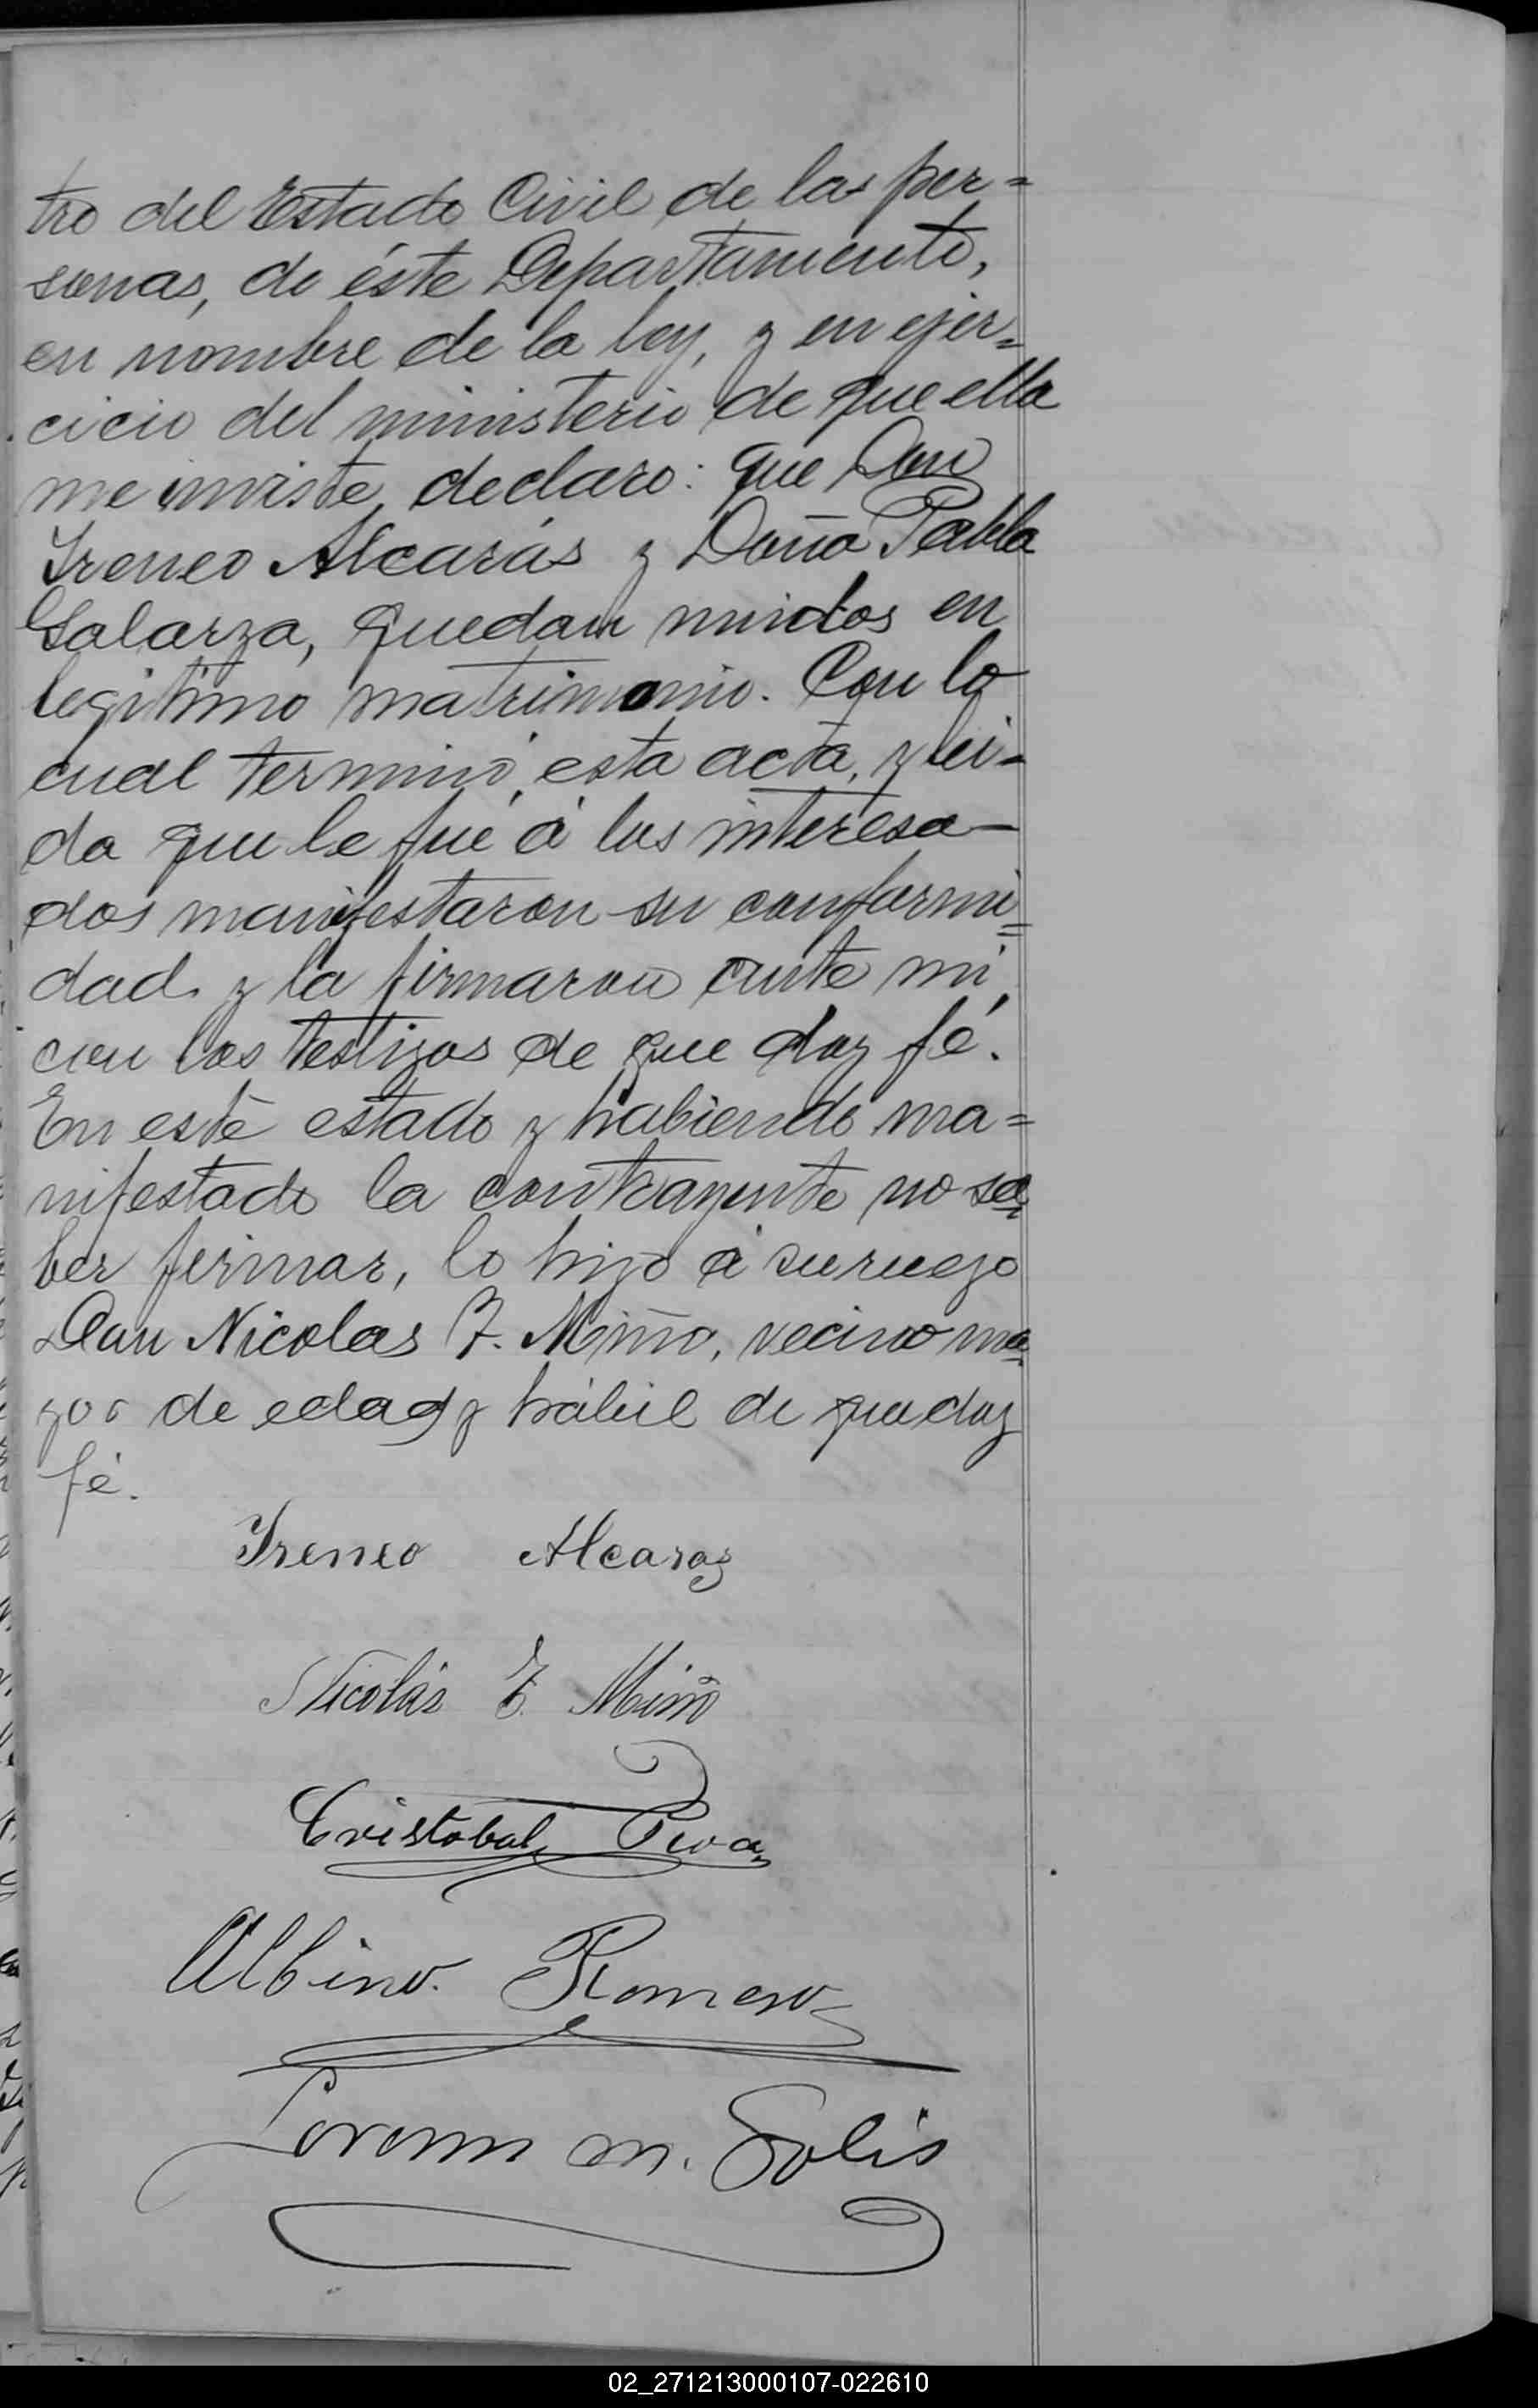 tro del Estado Civil de las per=
sonas, de éste Departamento,
en nombre de la ley, y en ejer=
cicio del ministerio de que ella
me inviste, declaro: que Don
Ireneo Alcarás y Doña Pabla
Galarza, quedan unidos en
legitimo matrimonio. Con lo
cual terminó, esta acta, y lei-
da que le fué á los interesa-
dos manifestaron su conformi=
dad y la firmaron ante mi,
con los testigos de que doy fé.
En este estado y habiendo ma=
nifestado la contrayente no sa=
ber firmar, lo hizo á su ruego
Don Nicolas F. Miño, vecino ma=
yor de edad y hábil de que doy
fé.
Ireneo Alcaraz
Nicolás F. Miño
Cristobal
Albino Romero
M. Solis
02_271213000107-022610